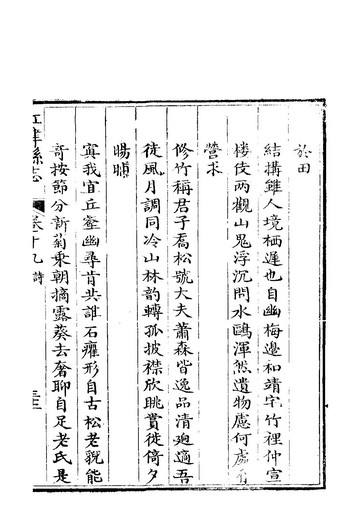 於田
結搆雖人境栖遲也自幽梅邊和靖宅竹裡仲宣
樓伎兩觀山鬼浮沉問水鷗渾然遺物慮何處
營求
修竹稱君子喬松號大夫蕭森皆逸品清廸適吾
徒風月調同冷山林韵轉孤披襟欣眺賞徙倚夕
陽晡
寘我宜丘壑幽尋肯共誰石癯形自古松老貌能
奇按節分新菊乘朝摘露葵去奢聊自足老氏是
江津縣志 卷十九 詩